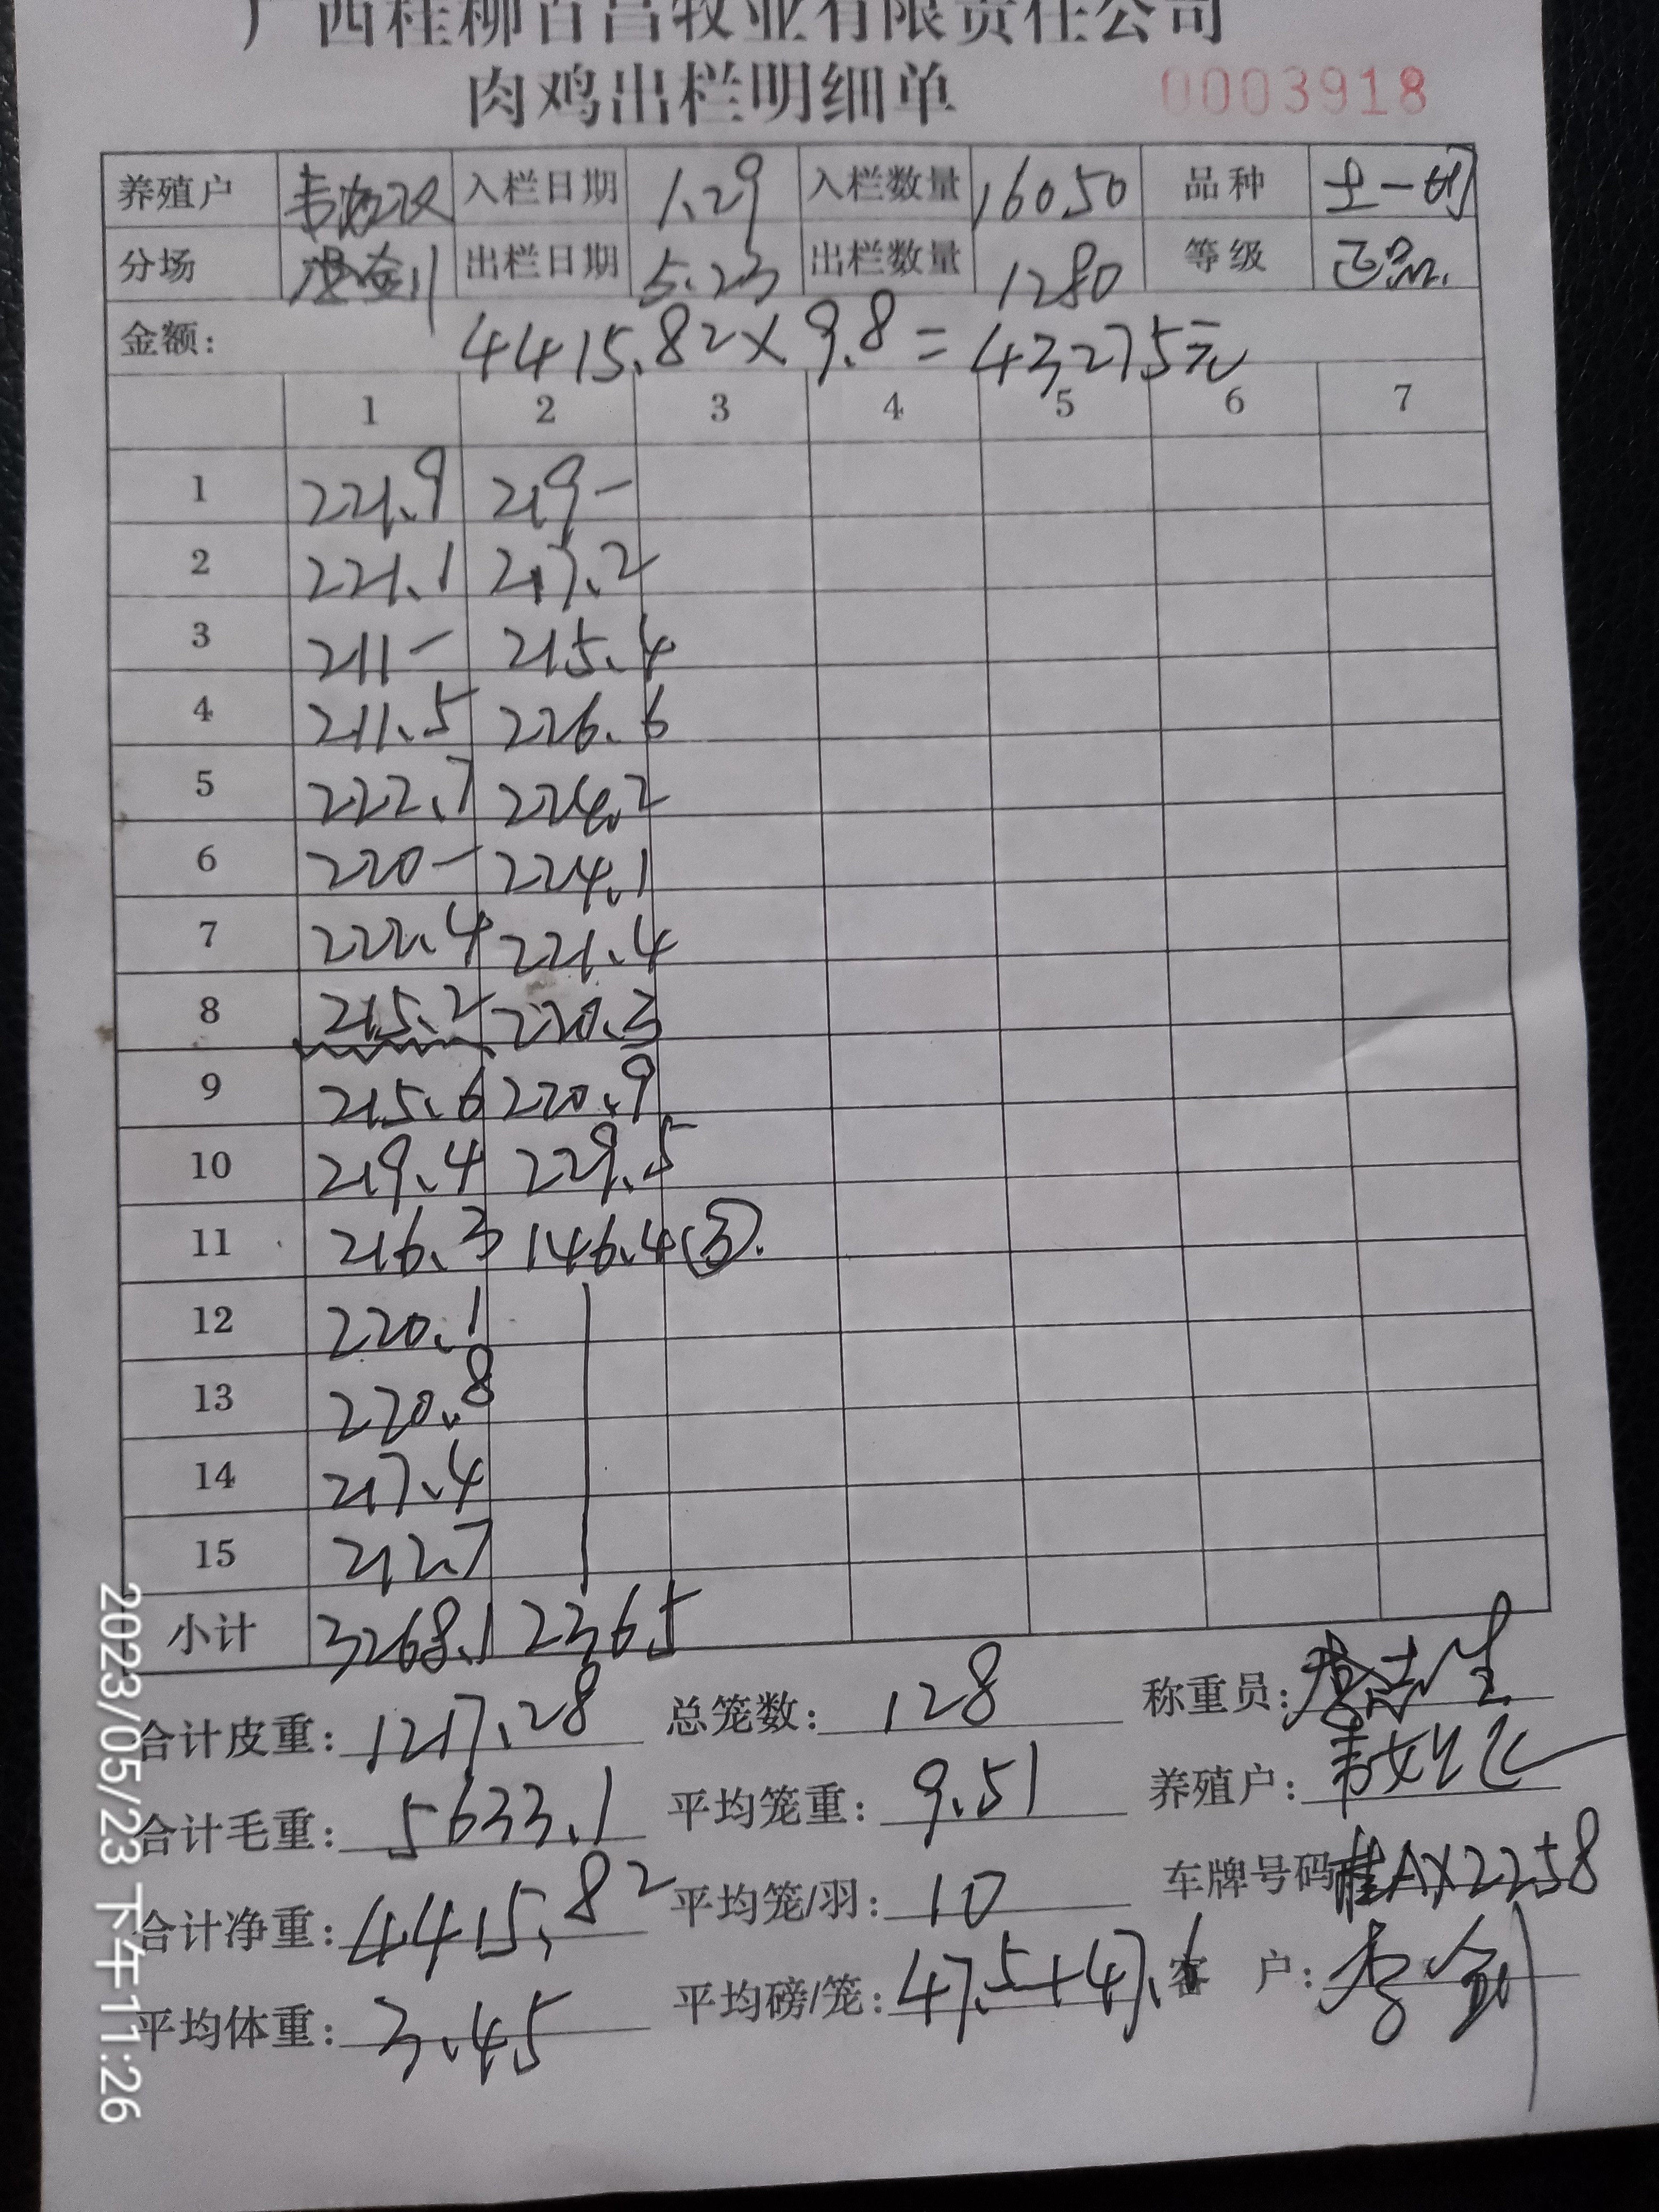 广西桂柳百昌牧业有限责任公司
肉鸡出栏明细单 0003918
养殖户 入栏日期 1.29 入栏数量 16050 品种 土一
分场 出栏日期 5.23 出栏数量 1280 等级 正品.
金额: 4415.82×9.8=43275元
1 2 3 4 5 6 7
1 221.9 219-
2 221.1 217.2
3 211- 215.4
4 211.5 226.6
5 222.7 224.2
6 220- 224.1
7 222.4 221.4
8 215.2 220.3
9 215.6 220.9
10 219.4 229.5
11 216.3 146.4(3).
12 220.1
13 220.8
14 217.4
15 212.7
小计 3268.1 2365
合计皮重: 1217.28 总笼数: 128 称重员:
合计毛重: 5633.1 平均笼重: 9.51 养殖户:
合计净重: 4415.82 平均笼/羽: 10 车牌号码 桂AX2258
平均体重: 3.45 平均磅/笼: 47.5+47.6 客 户:
2023/05/23 下午11:26